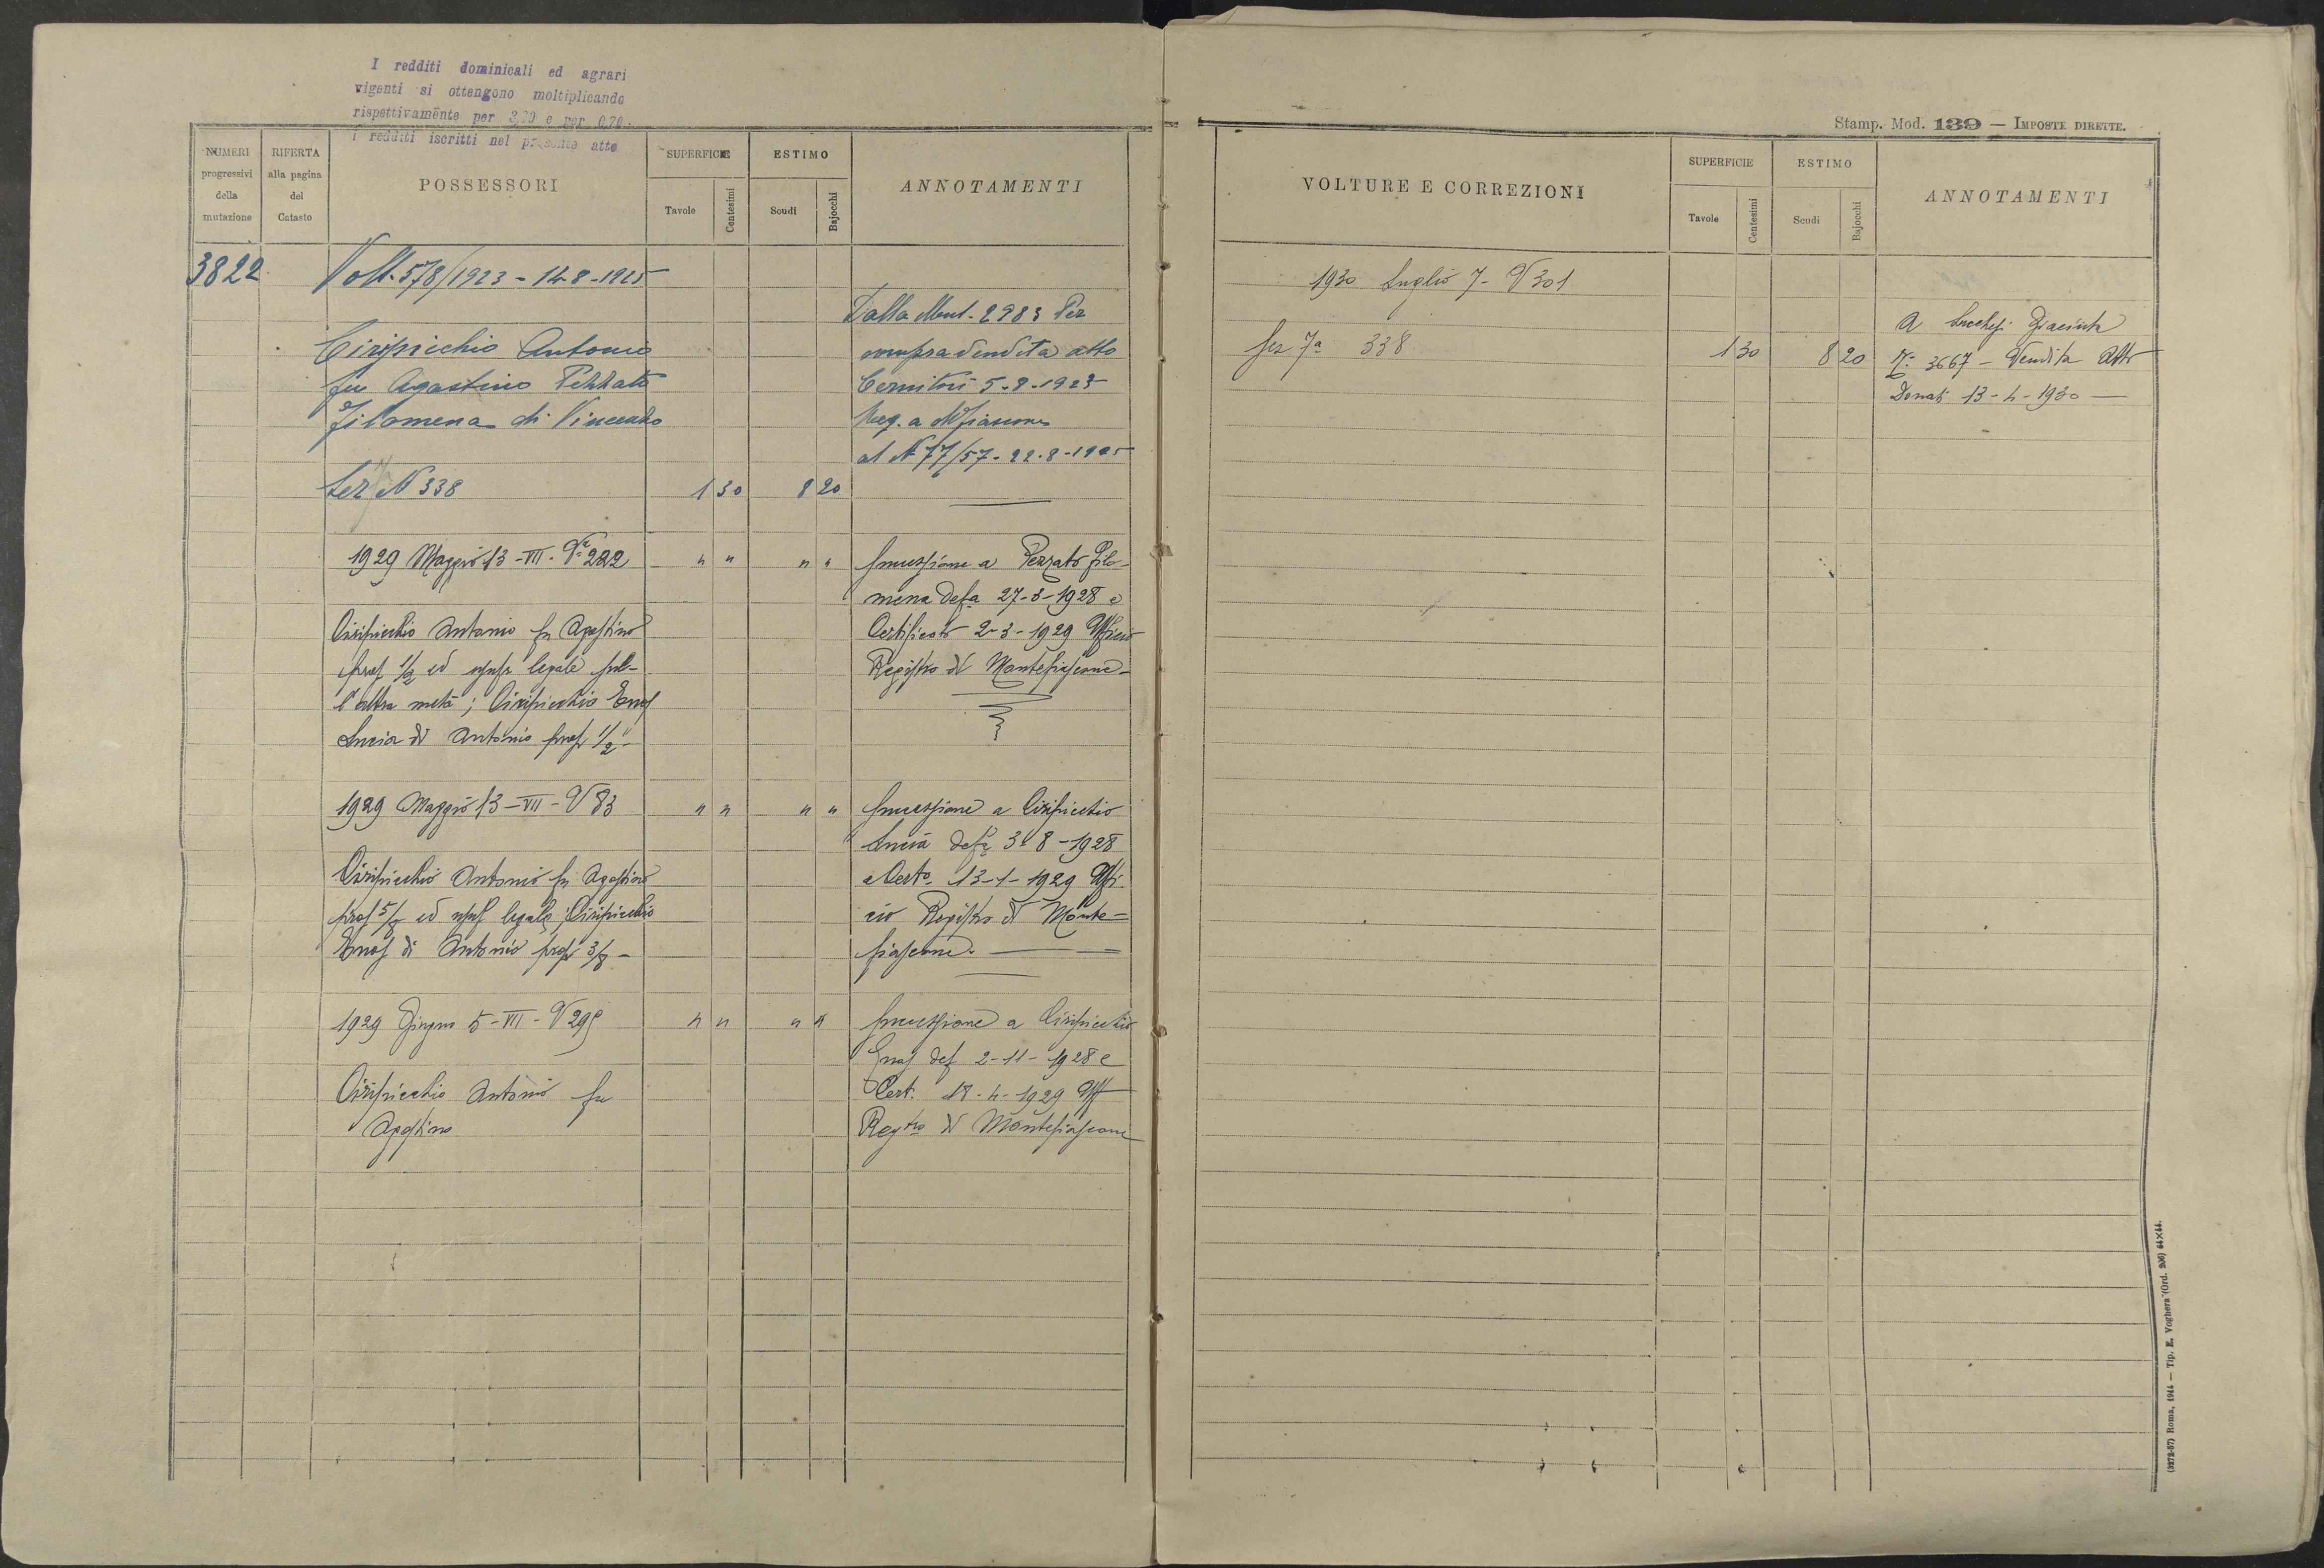 I redditi dominicali ed agrari
vigenti si ottengono moltiplicando
rispettivamente per 3,60 e per 0,70
i redditi iscritti nel presente atto
NUMERI
progressivi
della
mutazione
RIFERTA
alla pagina
del
Catasto
POSSESSORI
SUPERFICIE
Tavole
Centesimi
ESTIMO
Scudi
Bajocchi
ANNOTAMENTI
3822 Volt. 578/1923 - 14-8-1925
Dalla Mut. 2983 Per
Ciripicchio Antonio compra vendita atto
fu Agostino Pezzato 5-8-1923
Filomena di Vincenzo Reg. a Mfiascone
al N 77/57 - 22-8-1925
Sez N 338 1 30 8 20
1929 Maggio 13 - VII - Va 222 " " " " successione a Pezzato Filo-
mena defa 27-3-1928 e
Ciripicchio Antonio fu Agostino Certificato 2-3-1929 Ufficio
prop 1/2 ed usufr legale sul- Registro di Montefiascone
l'altra metà; Ciripicchio Enos
Lucia di Antonio prop 1/2
1929 Maggio 13 - VII - V 83 " " " " successione a Ciripicchio
Lucia defa 3 8 - 1928
Ciripicchio Antonio fu Agostino e Certo 13-1-1929 Uffi-
prop 5/8 ed usuf legale; Ciripicchio cio Registro di Monte-
Enos di Antonio prop 3/8 - fiascone.
1929 Giugno 5 - VII - V 299 " " " " successione a Ciripicchio
Enos def 2-11-1928 e
Ciripicchio Antonio fu Cert. 18-4-1929 Uff
Agostino Regtro di Montefiascone
Stamp. Mod. 139 — IMPOSTE DIRETTE.
VOLTURE E CORREZIONI
SUPERFICIE
Tavole
Centesimi
ESTIMO
Scudi
Bajocchi
ANNOTAMENTI
1930 Luglio 7 - V 301
A Lucchesi Giacinta
Sez 7a 338 1 30 8 20 N. 3667 - Vendita Atto
Donati 13-4-1930
(3272-57) Roma, 1914 — Tip. E. Voghera (Ord. 206) 64×44.